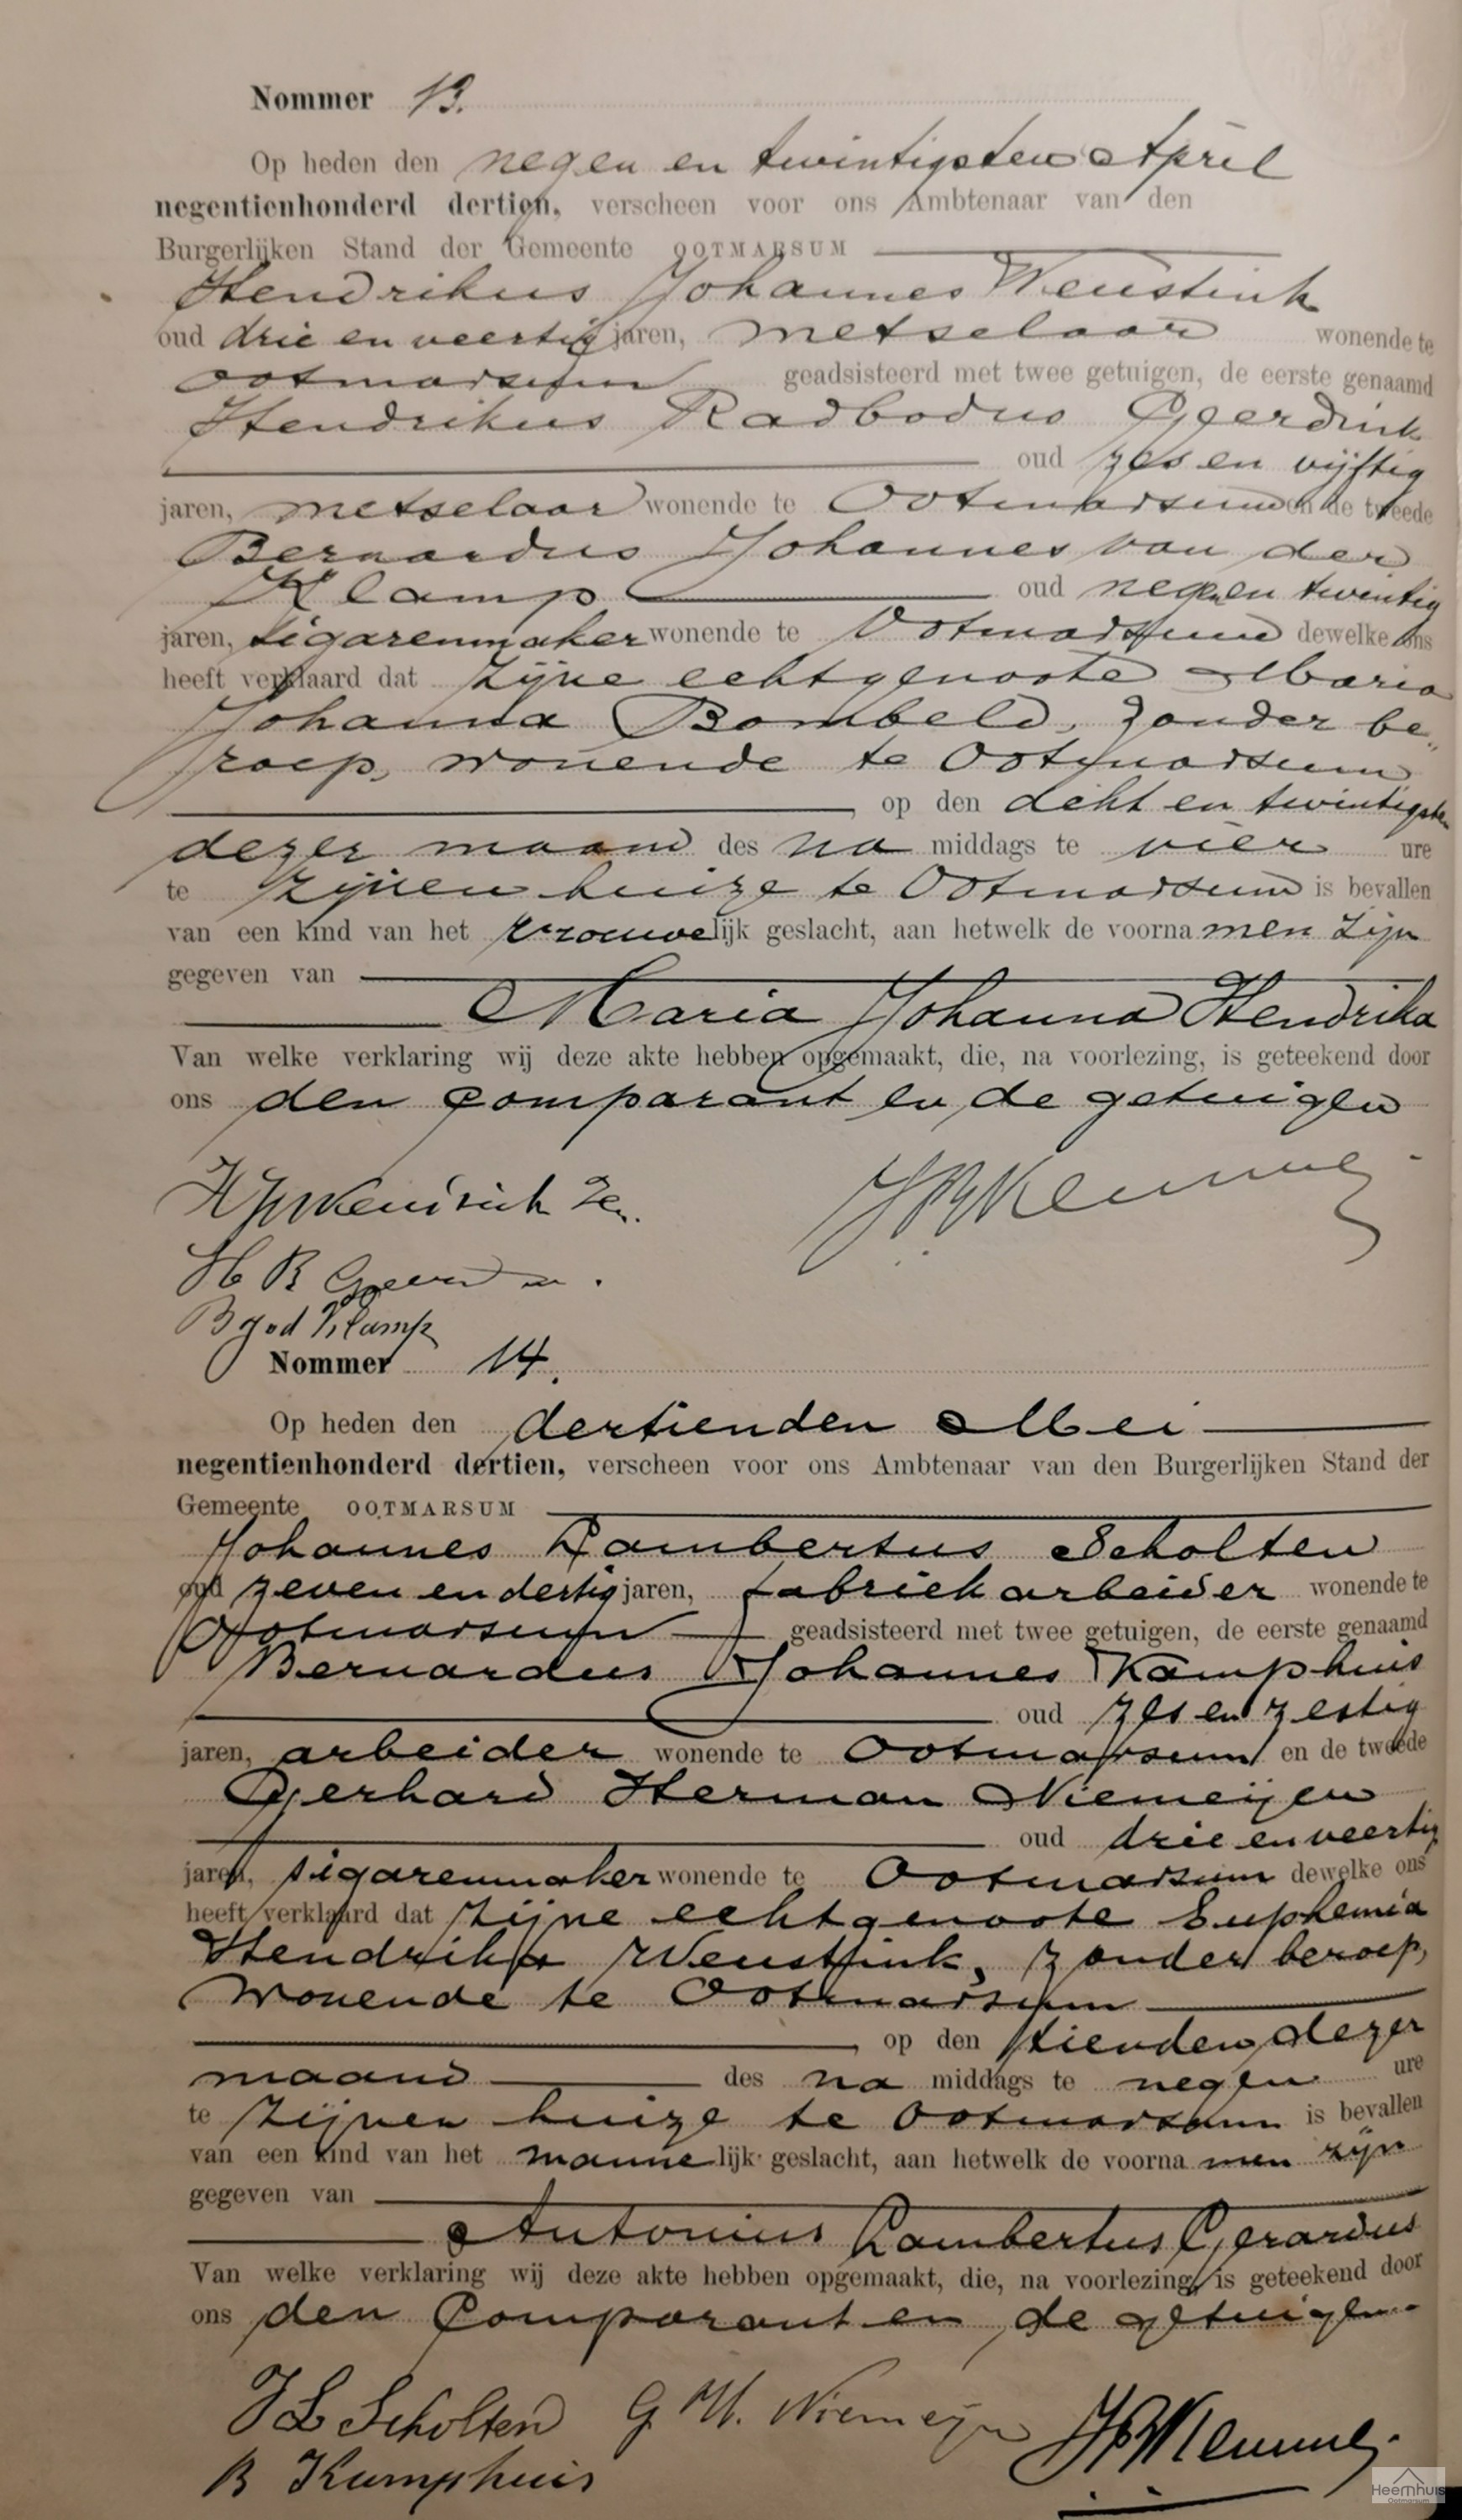 Nommer 13.
Op heden den negen en twintigsten April
negentienhonderd dertien, verscheen voor ons Ambtenaar van den
Burgerlijken Stand der Gemeente OOTMARSUM
Hendrikus Johannes Weustink
oud drie en veertig jaren, metselaar wonende te
Ootmarsum geadsisteerd met twee getuigen, de eerste genaamd
Hendrikus Radbodus Geerdink
oud zes en vijftig
jaren, metselaar wonende te Ootmarsum en de tweede
Bernardus Johannes van der
Klamp oud negen en twintig
jaren, sigarenmaker wonende te Ootmarsum dewelke ons
heeft verklaard dat zijne echtgenoote Maria
Johanna Bombeld, zonder be„
roep, wonende te Ootmarsum
op den acht en twintigsten
dezer maand des na middags te vier ure
te zijnen huize te Ootmarsum is bevallen
van een kind van het vrouwelijk geslacht, aan hetwelk de voornamen zijn
gegeven van
Maria Johanna Hendrika
Van welke verklaring wij deze akte hebben opgemaakt, die, na voorlezing, is geteekend door
ons den comparant en de getuigen
H B
B v d Klamp
Nommer 14.
Op heden den dertienden Mei
negentienhonderd dertien, verscheen voor ons Ambtenaar van den Burgerlijken Stand der
Gemeente OOTMARSUM
Johannes Lambertus Scholten
oud zeven en dertig jaren, fabriekarbeider wonende te
Ootmarsum geadsisteerd met twee getuigen, de eerste genaamd
Bernardus Johannes Kamphuis
oud zes en zestig
jaren, arbeider wonende te Ootmarsum en de tweede
Gerhard Herman Niemeijer
oud drie en veertig
jaren, sigarenmaker wonende te Ootmarsum dewelke ons
heeft verklaard dat zijne echtgenoote Euphemia
Hendrika Weustink, zonder beroep,
wonende te Ootmarsum
op den tienden dezer
maand des na middags te negen ure
te zijnen huize te Ootmarsum is bevallen
van een kind van het mannelijk geslacht, aan hetwelk de voornamen zijn
gegeven van
Antonius Lambertus Gerardus
Van welke verklaring wij deze akte hebben opgemaakt, die, na voorlezing, is geteekend door
ons den comparant en de getuigen.
J L Scholten G H. Niemeijer
B Kamphuis
Heemhuis
Ootmarsum